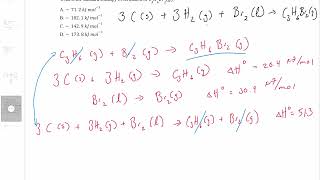 A. − 71.2 kJ mol⁻¹
B. − 182.1 kJ mol⁻¹
C. − 142.9 kJ mol⁻¹
D. − 173.8 kJ mol⁻¹
3 C(s) + 3H₂(g) + Br₂(l) → C₃H₆Br₂(g)
C₃H₆(g) + Br₂(g) → C₃H₆Br₂(g)
3 C(s) + 3H₂(g) → C₃H₆(g) ΔH° = 20.4 kJ/mol
Br₂(l) → Br₂(g) ΔH° = 30.9 kJ/mol
3 C(s) + 3H₂(g) + Br₂(l) → C₃H₆(g) + Br₂(g) ΔH° = 51.3